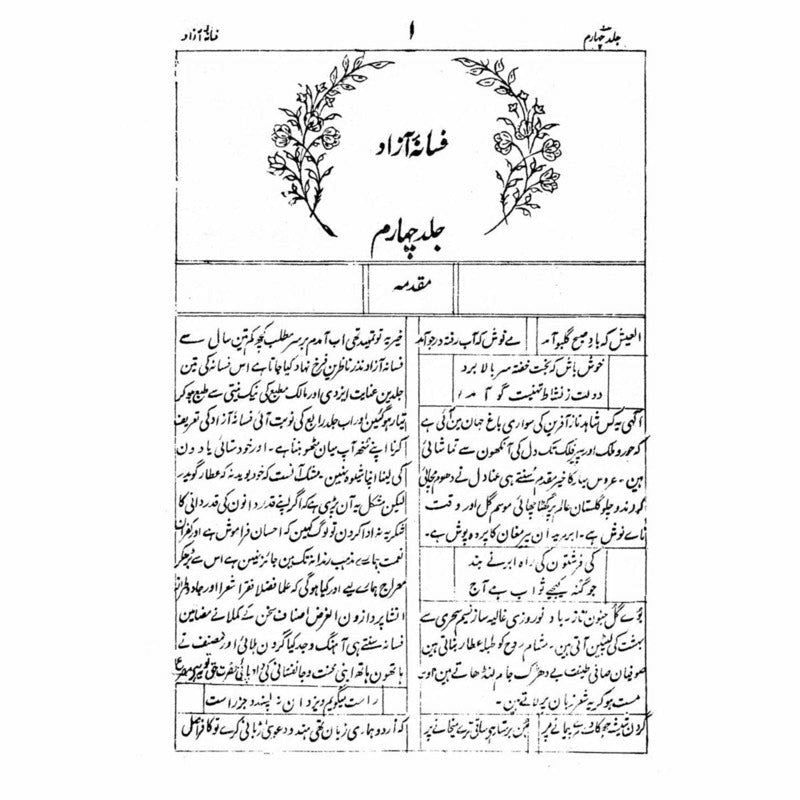 جلد چہارم
۱
فسانۂ آزاد
فسانۂ آزاد
جلد چہارم
مقدمہ
العیش کہ باد صبح گلبو آمد
مے نوش کہ آب رفتہ در جو آمد
خوش باش کہ بخت خفتہ سر بالا برد
دولت ز نشاط تہنیت گو آمد
الٰہی یہ کس شاہد ناز آفرین کی سواری باغ جہان مین آئی ہے
کہ حور و ملک اور پیر فلک تک دل کی آنکھون سے تماشائی
ہین۔ عروس بہار کا خیر مقدم سنتے ہی عنادل نے دھوم مچائی
گو رند و چلو گلستان عالم پر گھٹا چھائی موسم گل اور وقت
ناے نوش ہے۔ ابر سیہ ان پیر مغان کا پردہ پوش ہے۔
کی فرشتون کی راہ ابر نے بند
جو گنہ کیجیے ثواب ہے آج
بوے گل جنون تاز۔ باد نوروزی غالیہ ساز نسیم سحری سے
بہشت کی لپٹین آتی ہین۔ مشام روح کو طبلۂ عطار بناتی ہین
صوفیان صافی طینت بے دھڑک جام لنڈھاتے ہین اور
مست ہو کر یہ شعر زبان پر لاتے ہین۔
گردن شیشہ جھکا دے مرے پیمانے پر
ہن برستا رہے ساقی ترے میخانے پر
خیر یہ تو تمہید تھی اب آمدم بر سر مطلب کچھ کم تین سال سے
فسانۂ آزاد نذر ناظرین فرخ نہاد کیا جاتا ہے اس فسانہ کی تین
جلدین عنایت ایزدی اور مالک مطبع کی نیک نیتی سے طبع ہو کر
تیار ہو گئین اور اب جلد رابع کی نوبت آئی فسانۂ آزاد کی تعریف
کرنا اپنے منھ آپ میان مٹھو بننا ہے۔ اور خود ستائی یا دون
کی لینا اپنا شیوہ نہین۔ مشک آنست کہ خود ببوید نہ کہ عطار گوید
لیکن مشکل یہ آن پڑی ہے کہ اگر اپنے قدردانون کی قدردانی کا
شکریہ نہ ادا کرون تو لوگ کہین کہ احسان فراموش ہے اور کفران
نعمت ہمارے مذہب رندانہ تک مین جائز نہین ہے اس سے بڑھکر
معراج ہمارے لیے اور کیا ہوگی کہ علما فضلا فقرا شعرا اور جادو طراز
انشا پردازون الغرض اصناف سخن کے کملا نے مضامین
فسانہ سنتے ہی آہنگ وجد کیا گردن ہلائی اور مصنف نے
ہاتھون ہاتھ اپنی محنت و جانفشانی کی داد پائی
راست میگویم و یزدان نہ پسندد جز راست
کہ اردو ہماری زبان تھی ہندو دعوی زبانی کرے تو کافر اصل